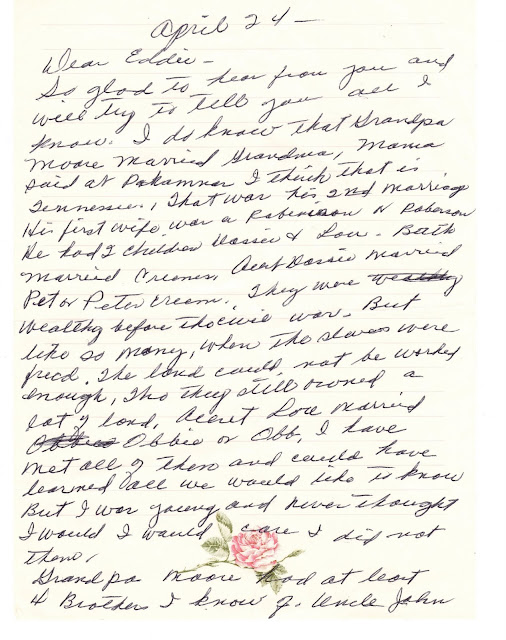 April 24 –
Dear Eddie –
So glad to hear from you and
will try to tell you all I
know. I do know that Grandpa
Moore married Grandma, Mama
said at I think that is
Tennessee, That was his 2nd marriage
His first wife was a Robinson or Roberson
He had 2 children Dossie & Lou. Both
married Aunt Dossie married
Pet or Peter They were wealthy
wealthy before the civil war. But
like so many, when the slaves were
freed. The land could not be worked
enough, Tho they still owned a
lot of land, Aunt Lou married
Obbie or Obb, I have
met all of them and could have
learned all we would like to know
But I was young and never thought
I would I would care I did not
then,
Grandpa Moore had at least
4 Brothers I know of. Uncle John